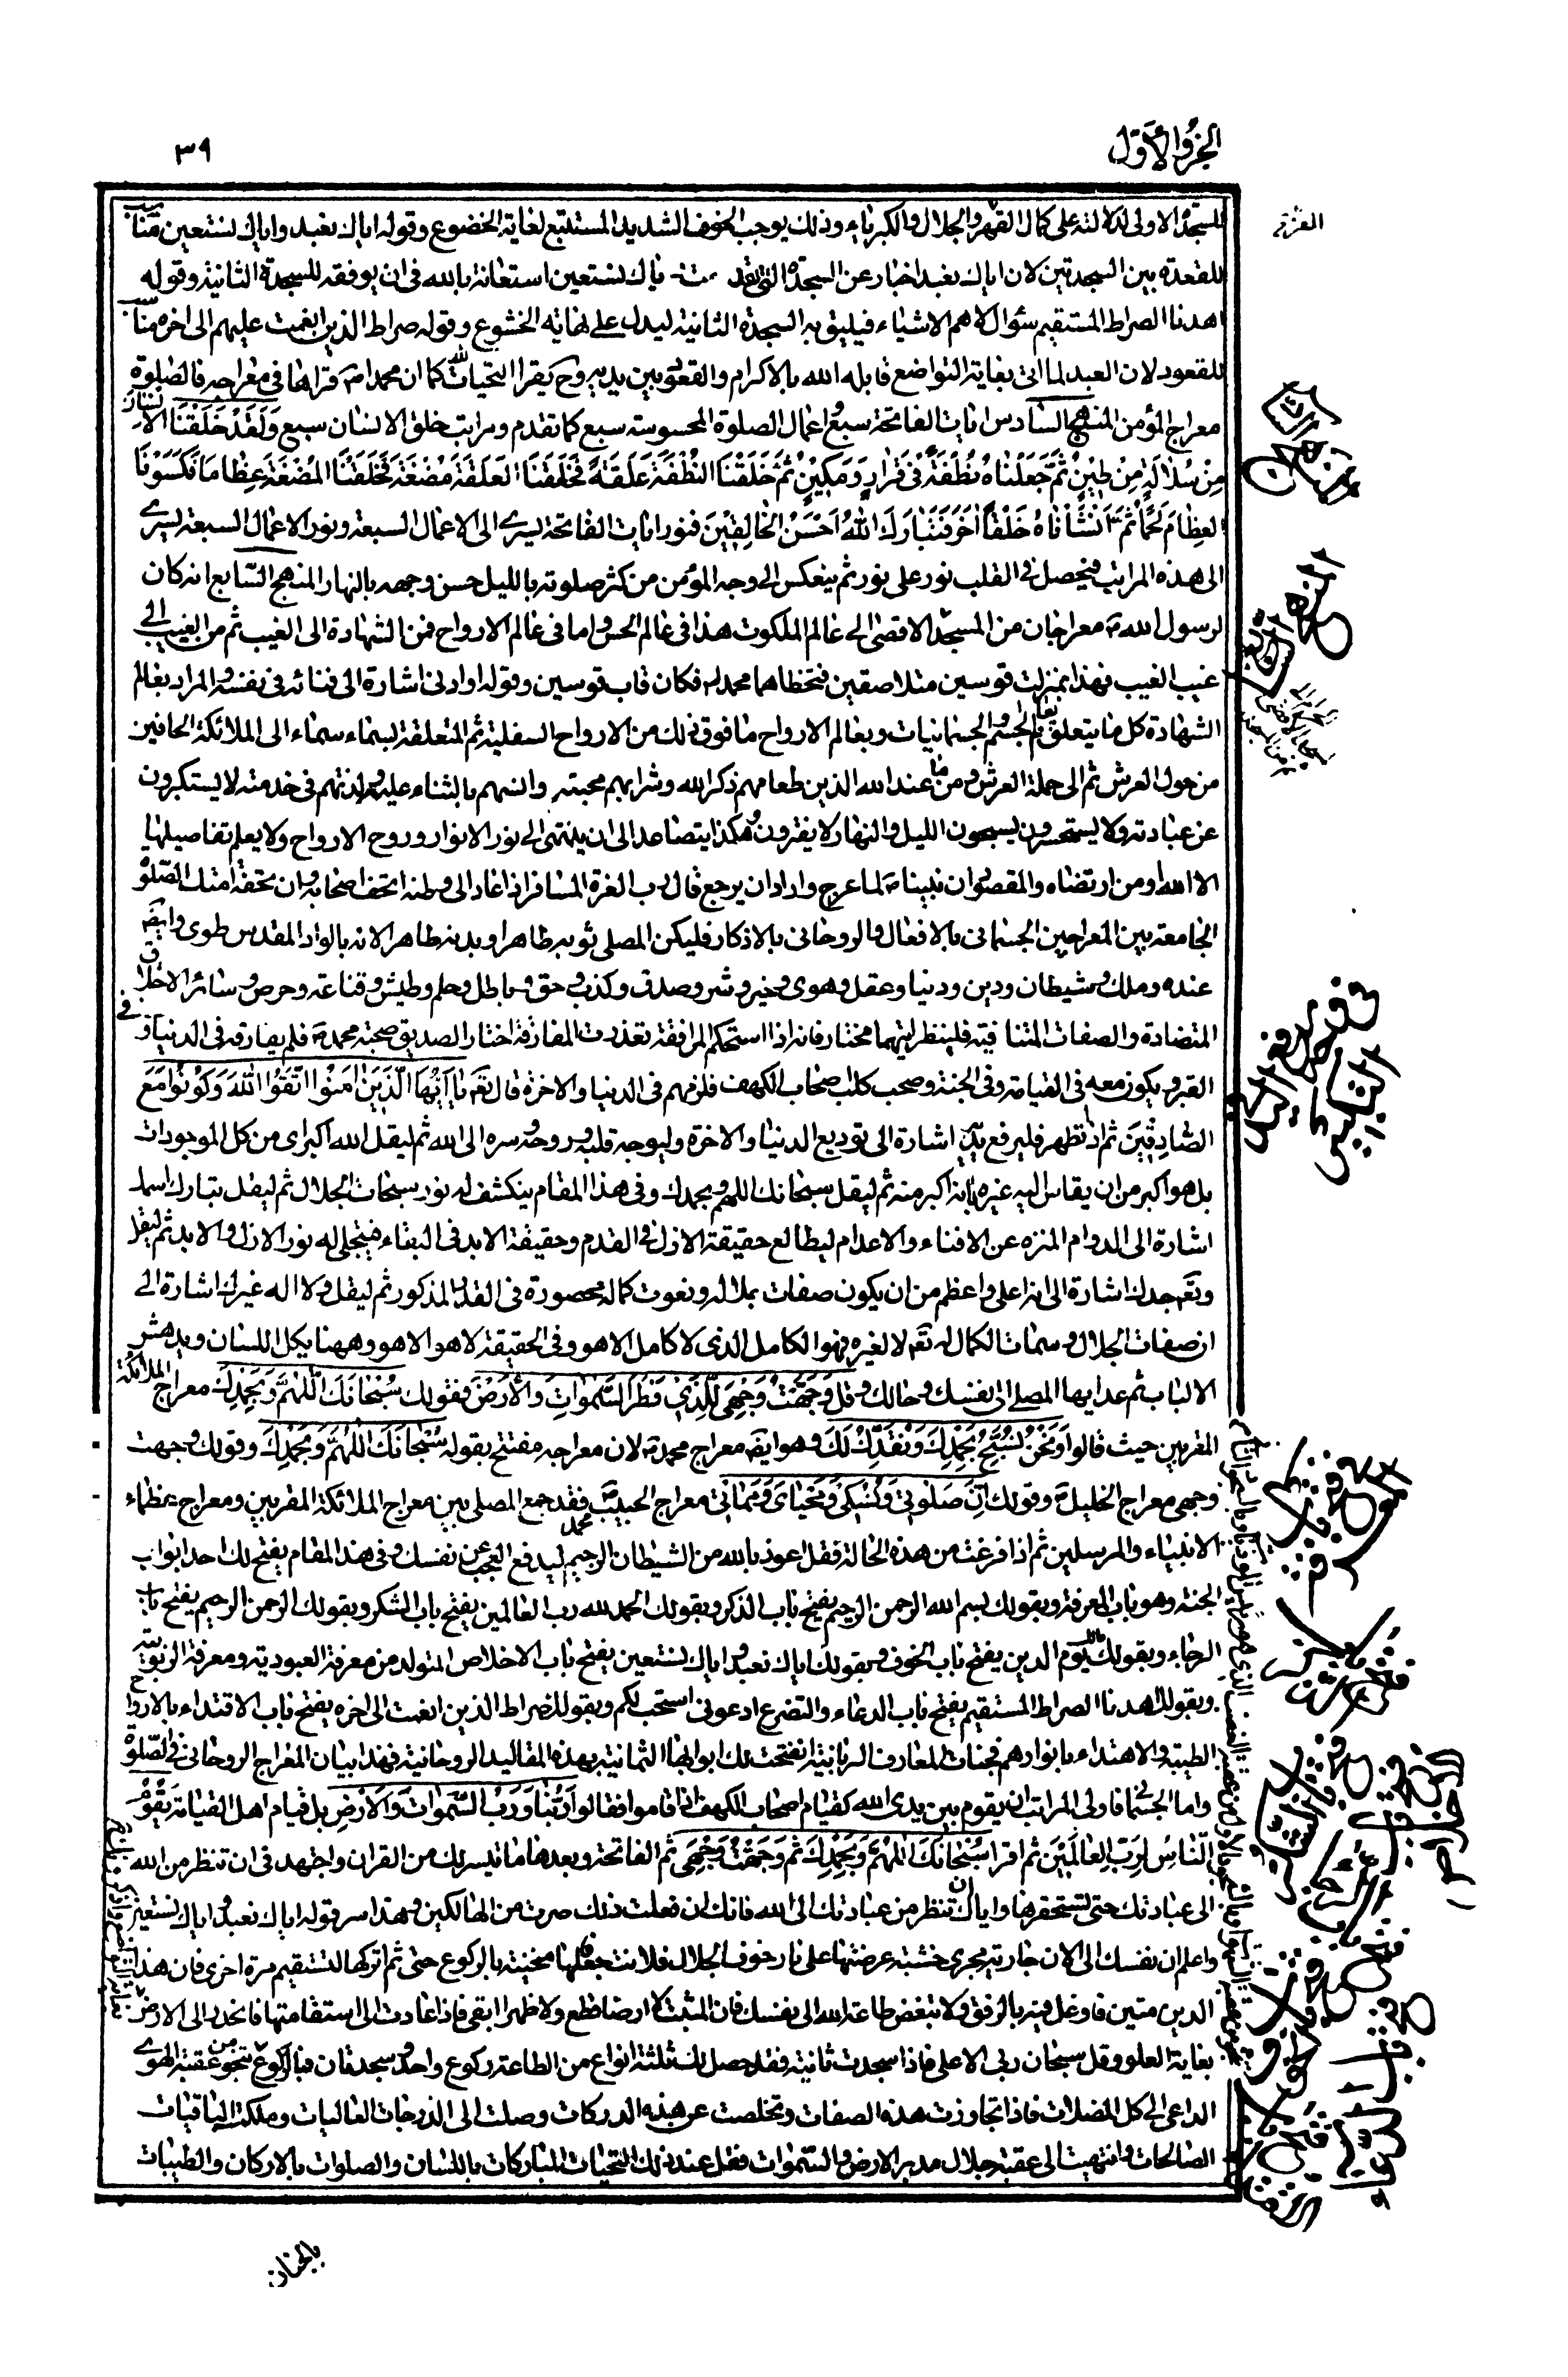 الجزو الأول
٣٩
للسجدة الاولى لدلالته على كمال القهر والجلال والكبرياء وذلك يوجب الخوف الشديد المستتبع لغاية الخضوع وقوله اياك نعبد واياك نستعين مناسب
للقعدة بين السجدتين لان اياك نعبد اخبار عن السجدة التى تقدمت واياك نستعين استعانة بالله فى ان يوفقه للسجدة الثانية وقوله
اهدنا الصراط المستقيم سؤال لاهم الاشياء فيليق به السجدة الثانية ليدل على نهاية الخشوع وقوله صراط الذين انعمت عليهم الى اخره مناسب
للقعود لان العبد لما اتى بغاية التواضع قابله الله بالاكرام والقعود بين يديه وح يقرا التحيات لله كما ان محمدا ص قراها فى معراجه فالصلوة
معراج المؤمن المنهج السادس ايات الفاتحة سبع واعمال الصلوة المحسوسة سبع كما تقدم ومراتب خلق الانسان سبع وَلَقَدْ خَلَقْنَا الانسان
مِنْ سُلالَةٍ مِنْ طِينٍ ثُمَّ جَعَلْنَاهُ نُطْفَةً فِى قَرارٍ وَمَكِينٍ ثُمَّ خَلَقْنَا النُّطْفَةَ عَلَقَةً فَخَلَقْنَا العَلَقَةَ مُضْغَةً فَخَلَقْنَا المُضْغَةَ عِظاماً فَكَسَوْنَا
العِظامَ لَحْماً ثُمَّ اَنْشَأْناهُ خَلْقاً اخَرَ فَتَبَارَكَ اللهُ اَحْسَنُ الخَالِقِينَ فنور ايات الفاتحة يسرى الى الاعمال السبعة ونور الاعمال السبعة يسرى
الى هذه المراتب فيحصل فى القلب نور على نور ثم ينعكس الى وجه المؤمن من كثر صلوته بالليل حسن وجهه بالنهار المنهج السابع انه كان
لرسول الله ص معراجان من المسجد الاقصى الى عالم الملكوت هذا فى عالم الحس واما فى عالم الارواح فمن الشهادة الى الغيب ثم من الغيب الى
غيب الغيب فهذا بمنزلة قوسين متلاصقين فتخطاهما محمد ص فكان قاب قوسين وقوله او ادنى اشارة الى فنائه فى نفسه والمراد بعالم
الشهادة كل ما يتعلق بعالم الجسم والجسمانيات وبعالم الارواح ما فوق ذلك من الارواح السفلية ثم المتعلقة بسماء سماء الى الملائكة الحافين
من حول العرش ثم الى حملة العرش ومن عند الله الذين طعامهم ذكر الله وشرابهم محبته وانسهم بالثناء عليه ولذتهم فى خدمته لا يستكبرون
عن عبادته ولا يستحسرون يسبحون الليل والنهار لا يفترون وهكذا يتصاعد الى ان ينتهى الى نور الانوار وروح الارواح ولا يعلم تفاصيلها
الا الله او من ارتضاه والمقصود ان نبينا ص لما عرج واراد ان يرجع قال رب العزة المسافر اذا عاد الى وطنه اتحف اصحابه وان تحفة امتك الصلوة
الجامعة بين المعراجين الجسمانى بالافعال والروحانى بالاذكار فليكن المصلى ثوبه طاهرا وبدنه طاهرا لانه بالواد المقدس طوى وايضا
عنده ملك وشيطان ودين ودنيا وعقل وهوى وخير وشر وصدق وكذب وحق وباطل وحلم وطيش وقناعة وحرص وسائر الاخلاق
المتضادة والصفات المتنافية فلينظر ايتهما يختار فانه اذا استحكم المرافقة تعذرت المفارقة اختار الصديق صحبة محمد ص فلم يفارقه فى الدنيا وفى
القبر ويكون معه فى القيامة وفى الجنة وصحب كلب اصحاب الكهف فلزمهم فى الدنيا والاخرة قال تعَ يا اَيُّهَا الَّذِينَ امَنُوا اتَّقُوا اللهَ وَكُونُوا مَعَ
الصَّادِقِينَ ثم اذا تطهر فليرفع يديه اشارة الى توديع الدنيا والاخرة وليوجه قلبه وروحه وسره الى الله ثم ليقل الله اكبر اى من كل الموجودات
بل هو اكبر من ان يقاس اليه غيره بانه اكبر منه ثم ليقل سبحانك اللهم وبحمدك وفى هذا المقام ينكشف له نور سبحات الجلال ثم ليقل تبارك اسمك
اشارة الى الدوام المنزه عن الافناء والاعدام ليطالع حقيقة الازل فى القدم وحقيقة الابد فى البقاء فيتجلى له نور الازل والابد ثم ليقل
وتعَ جدك اشارة الى انه اعلى واعظم من ان يكون صفات جلاله ونعوت كماله محصورة فى القدر المذكور ثم ليقل ولا اله غيرك اشارة الى
ان صفات الجلال وسمات الكمال له تعَ لا لغيره فهو الكامل الذى لا كامل الا هو وفى الحقيقة لا هو الا هو وههنا يكل اللسان ويدهش
الالباب ثم عد ايها المصلى الى نفسك وحالك وقل وَجَّهْتُ وَجْهِىَ لِلَّذِى فَطَرَ السَّمواتِ وَالْأَرْضَ فقولك سُبْحَانَكَ اللّهُمَّ وَبِحَمْدِكَ معراج الملائكة
المقربين حيث قالوا وَنَحْنُ نُسَبِّحُ بِحَمْدِكَ وَنُقَدِّسُ لَكَ وهو ايضا معراج محمد ص لان معراجه مفتتح بقوله سُبْحَانَكَ اللّهُمَّ وَبِحَمْدِكَ وقولك وجهت
وجهى معراج الخليل ع وقولك اِنَّ صَلوتِى وَنُسُكِى وَمَحْيَاىَ وَمَمَاتِى معراج الحبيب محمد ص فقد جمع المصلى بين معراج الملائكة المقربين ومعراج عظماء
الانبياء والمرسلين ثم اذا فرغت من هذه الحالة فقل اعوذ بالله من الشيطان الرجيم ليدفع العجب عن نفسك وفى هذا المقام يفتح لك احد ابواب
الجنة وهو باب المعرفة وبقولك بسم الله الرحمن الرحيم يفتح باب الذكر وبقولك الحمد لله رب العالمين يفتح باب الشكر وبقولك الرحمن الرحيم يفتح باب
الرجاء وبقولك مالك يوم الدين يفتح باب الخوف وبقولك اياك نعبد واياك نستعين يفتح باب الاخلاص المتولد من معرفة العبودية ومعرفة الربوبية
وبقولك اهدنا الصراط المستقيم يفتح باب الدعاء والتضرع ادعونى استجب لكم وبقولك صراط الذين انعمت الى اخره يفتح باب الاقتداء بالارواح
الطيبة والاهتداء بانوارهم فجنات المعارف الربانية انفتحت لك ابوابها الثمانية بهذه المقاليد الروحانية فهذا بيان المعراج الروحانى فى الصلوة
واما الجسمانى فاولى المراتب ان يقوم بين يدى الله كقيام اصحاب الكهف اذ قاموا فقالوا رَبُّنَا رَبُّ السَّمواتِ وَالْأَرْضِ بل قيام اهل القيامة يَقُومُ
النّاسُ لِرَبِّ الْعَالَمِينَ ثم اقرا سُبْحَانَكَ اللّهُمَّ وَبِحَمْدِكَ ثم وَجَّهْتُ وَجْهِىَ ثم الفاتحة وبعدها ما تيسر لك من القران واجتهد فى ان تنظر من الله
الى عبادتك حتى تستحقرها واياك ان تنظر من عبادتك الى الله فانك ان فعلت ذلك صرت من الهالكين وهذا سر قوله اياك نعبد واياك نستعين
واعلم ان نفسك الى الان جارية مجرى خشبة عرضتها على نار خوف الجلال فلانت فاجعلها منحنية بالركوع حتى ثم اتركها لتستقيم مرة اخرى فان هذا
الدين متين فاوغل فيه بالرفق ولا تبغض طاعة الله الى نفسك فان المنبت لا ارضا قطع ولا ظهرا ابقى فاذا عادت الى استقامتها فانحدر الى الارض
بغاية العلو وقل سبحان ربى الاعلى فاذا سجدت ثانية فقد حصل لك ثلثة انواع من الطاعة ركوع واحد وسجدتان فبالركوع تنجو من عقبة الهوى
الداعى الى كل المضلات فاذا تجاوزت هذه الصفات وتخلصت عن هذه الدركات وصلت الى الدرجات العاليات وملكت الباقيات
الصالحات وانتهيت الى عقبة جلال مدبر الارض والسموات فقل عند ذلك التحيات المباركات باللسان والصلوات بالاركان والطيبات
بالجنان